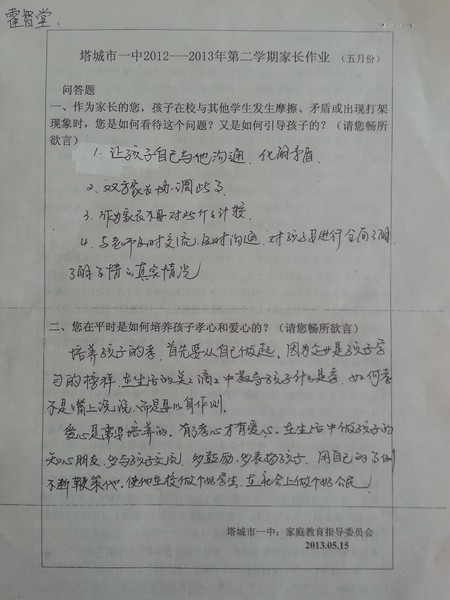 霍智堂
塔城市一中2012---2013年第二学期家长作业 （五月份）
问答题
一、作为家长的您，孩子在校与其他学生发生摩擦、矛盾或出现打架
现象时，您是如何看待这个问题？又是如何引导孩子的？（请您畅所
欲言）
1. 让孩子自己与他沟通，化解矛盾
2. 双方家长协调此事
3. 作为家长不要对些计较
4. 与老师及时交流，及时沟通，对孩子要进行全面了解
了解事情的真实情况
二、您在平时是如何培养孩子孝心和爱心的？（请您畅所欲言）
培养孩子的孝，首先要从自己做起，因为是孩子学
习的榜样，在生活的点点滴滴中教导孩子什么是孝，如何孝
不是嘴上说说，而是要以身作则。
爱心是需要培养的，有孝心才有爱心，在生活中做孩子的
知心朋友，多与孩子交流，多鼓励，多表扬孩子，用自己的
不断鞭策他，使他在校做个好学生，在社会上做个好公民
塔城市一中：家庭教育指导委员会
2013.05.15